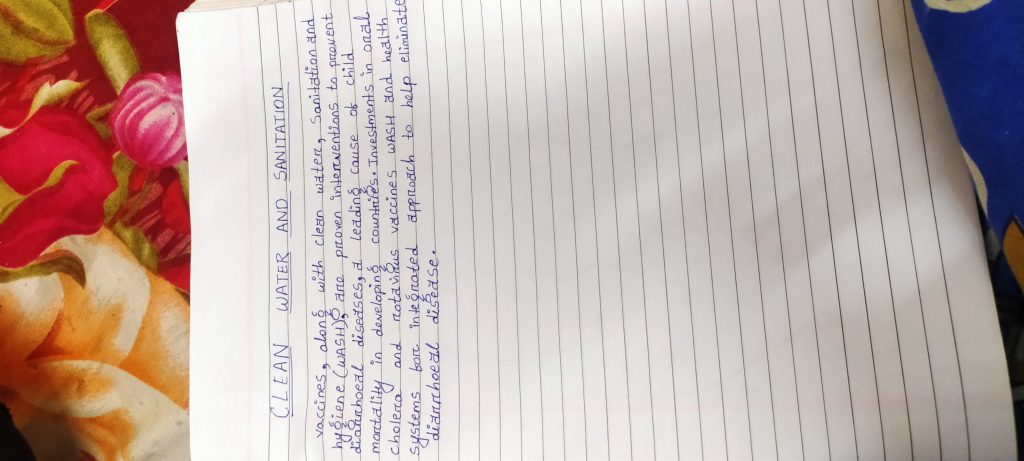 CLEAN WATER AND SANITATION
vaccines, along with clean water, Sanitation and
hygiene (WASH), are proven interventions to prevent
diarrhoeal diseases, a leading cause of child
mortality in developing countries. Investments in oral
cholera and rotavirus vaccines WASH and health
systems for integrated approach to help eliminate
diarrhoeal disease.